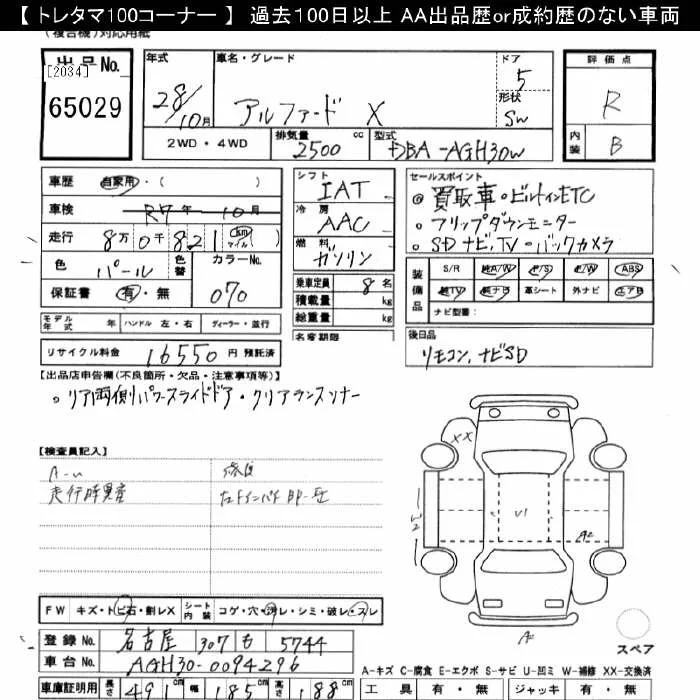 【 トレタマ100コーナー 】 過去100日以上 AA出品歴or成約歴のない車両
(複合機)対応用紙
出品No.
[2034]
65029
年式
28/10月
車名・グレード
アルファード X
ドア
5
形状
SW
評価点
R
内装
B
2WD・4WD
排気量
2500 cc
型式
DBA-AGH30W
車歴 自家用・( )
車検 R7年 10月
走行 8万0千821 km マイル
色 パール
色替
カラーNo.
070
保証書 有・無
シフト
IAT
冷房
AAC
燃料
ガソリン
乗車定員 8 名
積載量 kg
総重量 kg
名変期限
セールスポイント
◎ 買取車。ビルトインETC
。フリップダウンモニター
。SDナビ,TV。バックカメラ
装備品
S/R 純A/W P/S P/W ABS
純TV 純ナビ 革シート 外ナビ エアB
ナビ型番:
モデル年式 年 ハンドル 左・右 ディーラー・並行
リサイクル料金 16550 円 預託済
後日品
リモコン、ナビSD
【出品店申告欄(不良箇所・欠品・注意事項等)】
。リア両側パワースライドドア・クリアランスソナー
【検査員記入】
走行時異音
修復
XX
W2
V1
A2
A2
FW キズ・トビ石・割レX
シート内装 コゲ・穴・汚レ・シミ・破レ・スレ
登録No. 名古屋 307 も 5744
車台No. AGH30-0094296
車庫証明用 長さ 491 cm 幅 185 cm 高さ 188 cm
スペア
A-キズ C-腐食 E-エクボ S-サビ U-凹ミ W-補修 XX-交換済
工具 有・無 ジャッキ 有・無